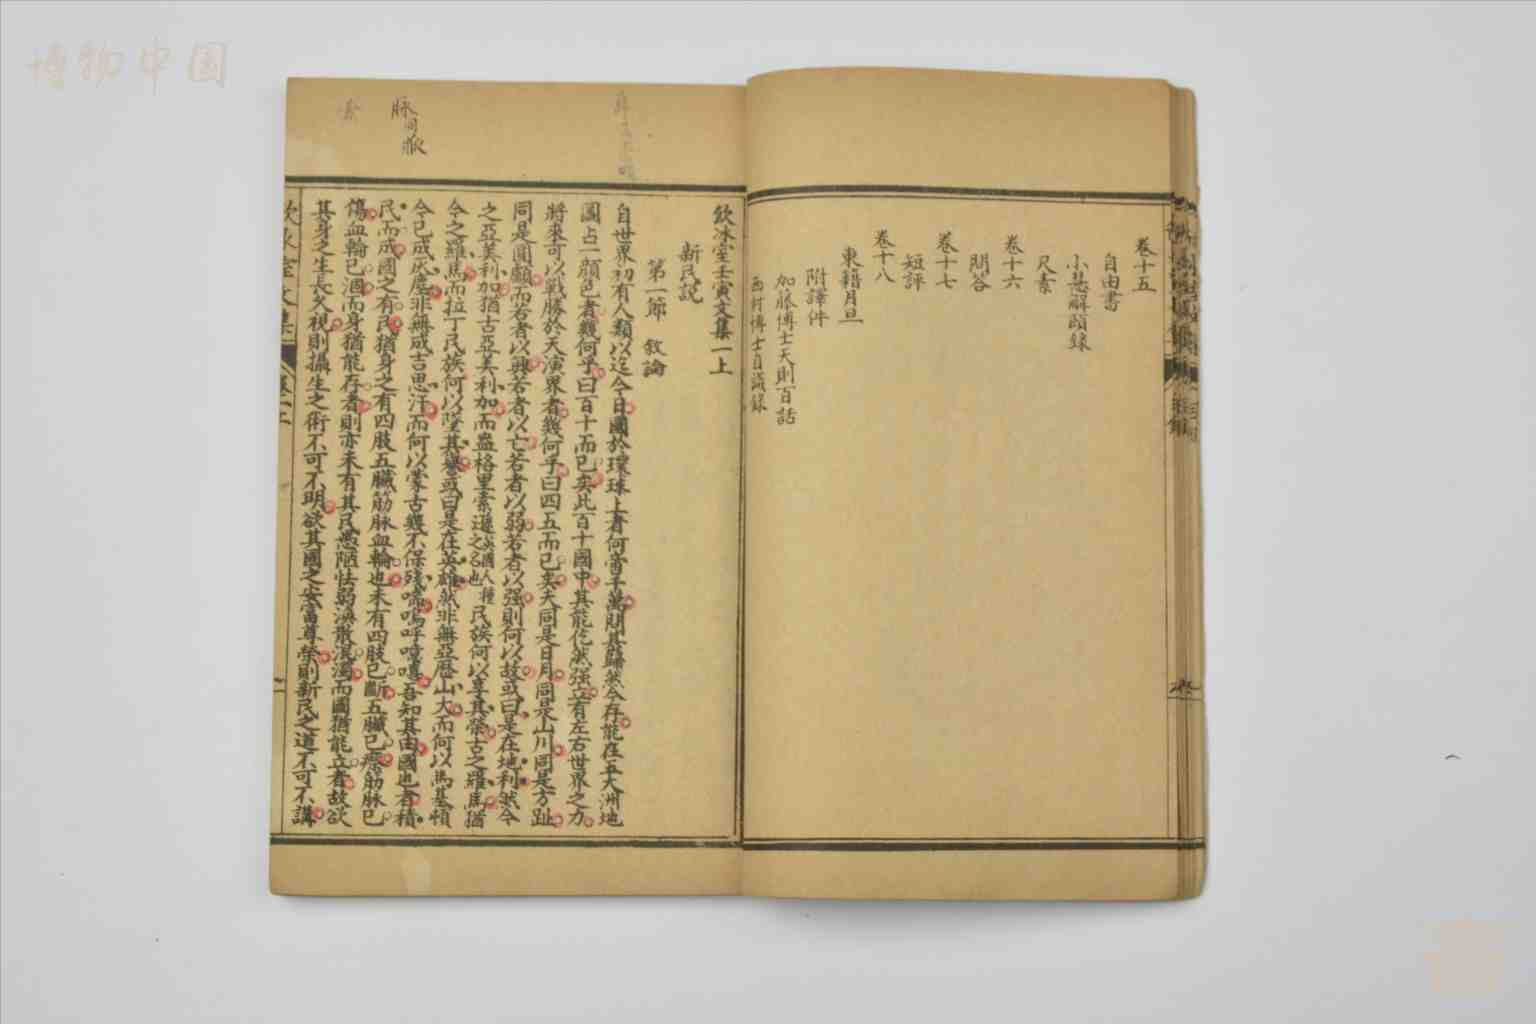 博物中国
卷十五
自由書
小慧解頤錄
尺素
卷十六
問答
卷十七
短評
卷十八
東籍月旦
附譯件
加藤博士天則百話
西村博士自識錄
飲冰室壬寅文集一上
新民說
第一節 敘論
自世界初有人類以迄今日國於環球上者何啻千萬問其巋然今存能在五大洲地
圖占一顏色者幾何乎曰百十而已矣此百十國中其能屹然强立有左右世界之力
將來可以戰勝於天演界者幾何乎曰四五而已矣夫同是日月同是山川同是方趾
同是圓顱而若者以興若者以亡若者以弱若者以强則何以故或曰是在地利然今
之亞美利加猶古亞美利加而盎格里索遜英國人種之名也民族何以享其榮古之羅馬猶
今之羅馬而拉丁民族何以墜其譽或曰是在英雄然非無亞歷山大而何以馬基頓
今已成灰塵非無成吉思汗而何以蒙古幾不保殘喘嗚呼噫嘻吾知其由國也者積
民而成國之有民猶身之有四肢五臟筋脉血輪也未有四肢已斷五臟已瘵筋脉已
傷血輪已涸而身猶能存者則亦未有其民愚陋怯弱渙散混濁而國猶能立者故欲
其身之生長久視則攝生之術不可不明欲其國之安富尊榮則新民之道不可不講
脉同脈